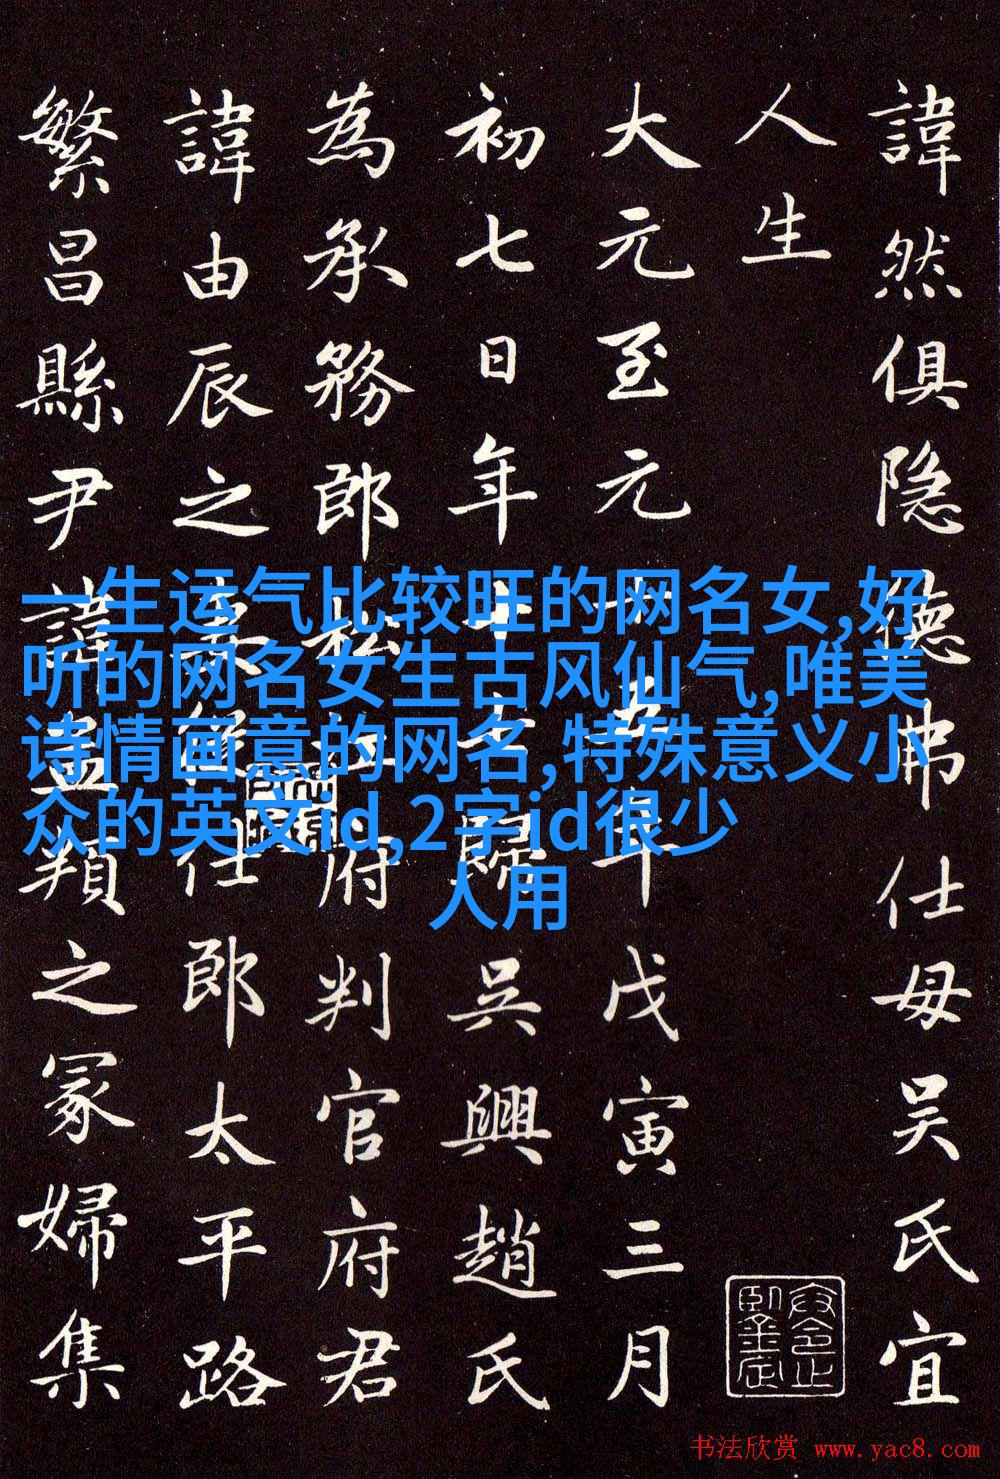 諱然俱隐德弗仕母吴氏宜
人生
大元至元十五年戊寅三月
初七日年歸吳興趙氏
為承務郎松江府判官府君
諱由辰之登仕郎太平路
繁昌縣尹諱孟之冢婦集
一生运气比较旺的网名女,好
听的网名女生古风仙气,唯美
诗情画意的网名,特殊意义小
众的英文id,2字id很少
人用
书法欣赏 www.yac8.com